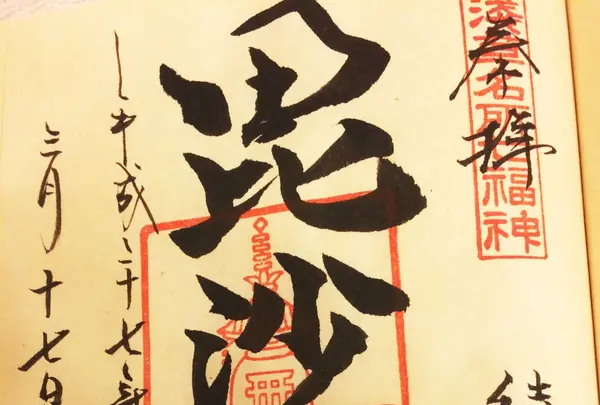 奉拝
淺草名所福神
毘沙
平成二十七年
三月十七日